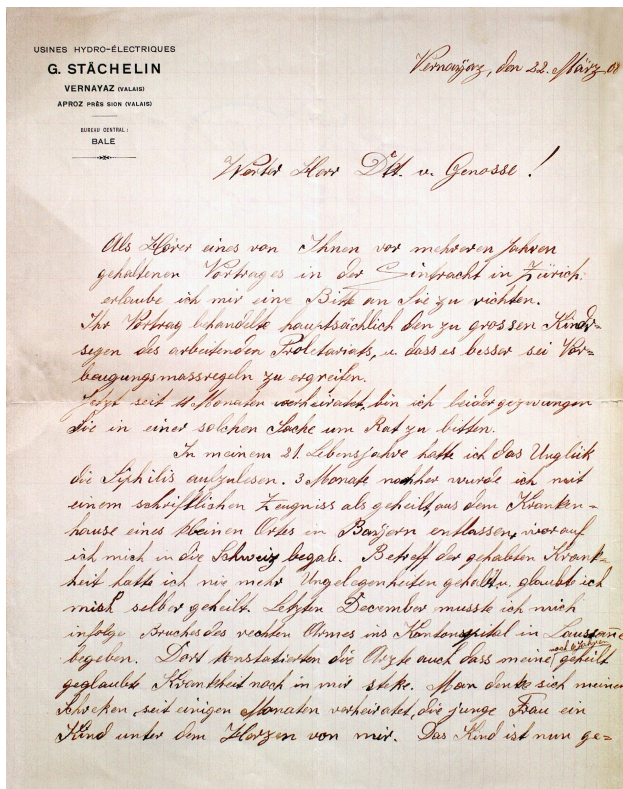 USINES HYDRO-ÉLECTRIQUES
G. STÄCHELIN
VERNAYAZ (VALAIS)
APROZ PRÈS SION (VALAIS)
BUREAU CENTRAL:
BALE
Vernayaz, den 22. März
Werter Herr Dkt. v. Genosse!
Als Hörer eines von Ihnen vor mehreren Jahren
gehaltenen Vortrages in der Eintracht in Zürich
erlaube ich mir eine Bitte an Sie zu richten.
Ihr Vortrag behandelte hauptsächlich den zu grossen Kinder-
segen des arbeitenden Proletariats, u. dass es besser sei Vor=
beugungsmassregeln zu ergreifen.
Jetzt seit 11 Monaten verheiratet, bin ich leider gezwungen
Sie in einer solchen Sache um Rat zu bitten.
In meinem 21. Lebensjahre hatte ich das Unglück
die Siphilis aufzulesen. 3 Monate nachher wurde ich mit
einem schriftlichen Zeugniss als geheilt, aus dem Kranken=
hause eines kleinen Ortes in Bayern entlassen, worauf
ich mich in die Schweiz begab. Betreff der gehabten Krank=
heit hatte ich nie mehr Ungelegenheiten gehabt u. glaubte ich
mich selber geheilt. Letzten December musste ich mich
infolge Bruches des rechten Armes ins Kantonspital in Lausanne
begeben. Dort konstatierten die Ärzte auch dass meine nach 6 Jahren geheilt
geglaubte Krankheit noch in mir steke. Man denke sich meinen
Schreken, seit einigen Monaten verheiratet, die junge Frau ein
Kind unter dem Herzen von mir. Das Kind ist nun ge=